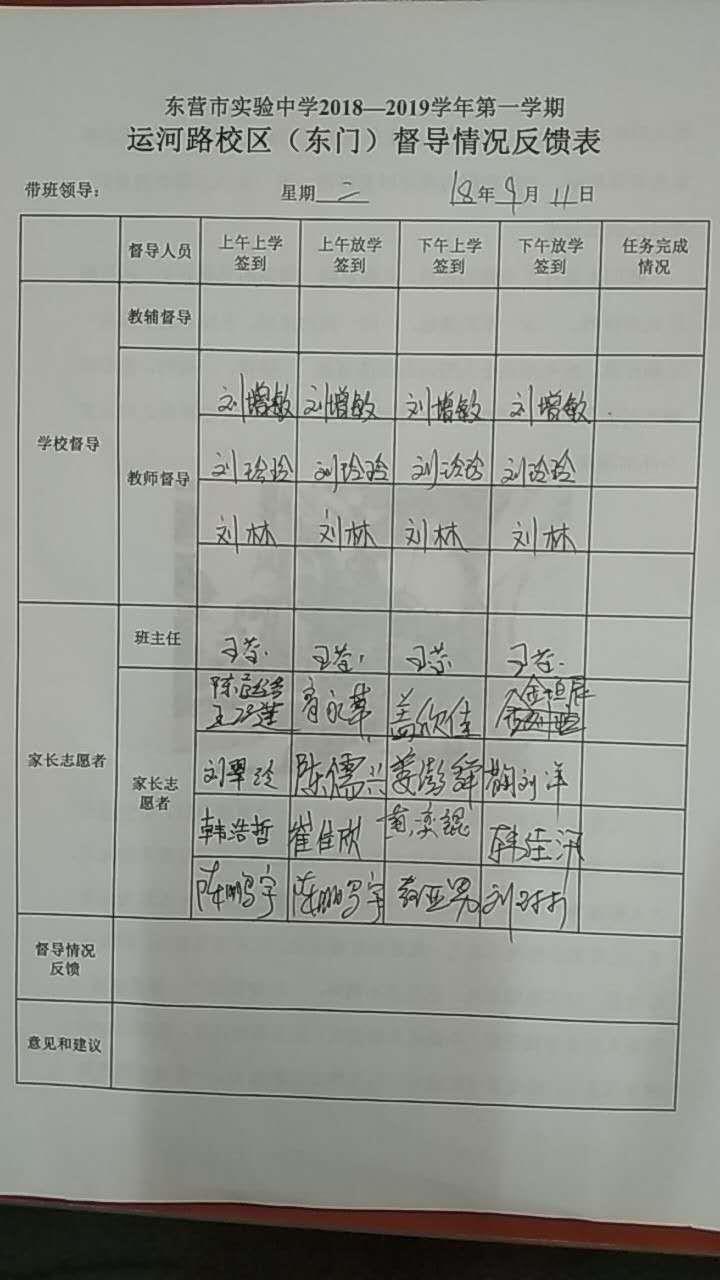 东营市实验中学2018—2019学年第一学期
运河路校区（东门）督导情况反馈表
带班领导： 星期 二 18年9月11日
督导人员 上午上学签到 上午放学签到 下午上学签到 下午放学签到 任务完成情况
学校督导
教辅督导
教师督导
刘增敏 刘增敏 刘增敏 刘增敏
刘玲玲 刘玲玲 刘玲玲 刘玲玲
刘林 刘林 刘林 刘林
家长志愿者
班主任
家长志愿者
盖欣佳
刘翠玲 陈儒兴 姜澎舜 刘洋
韩浩哲 崔佳欣 韩佳
陈鹏宇 陈鹏宇
督导情况反馈
意见和建议